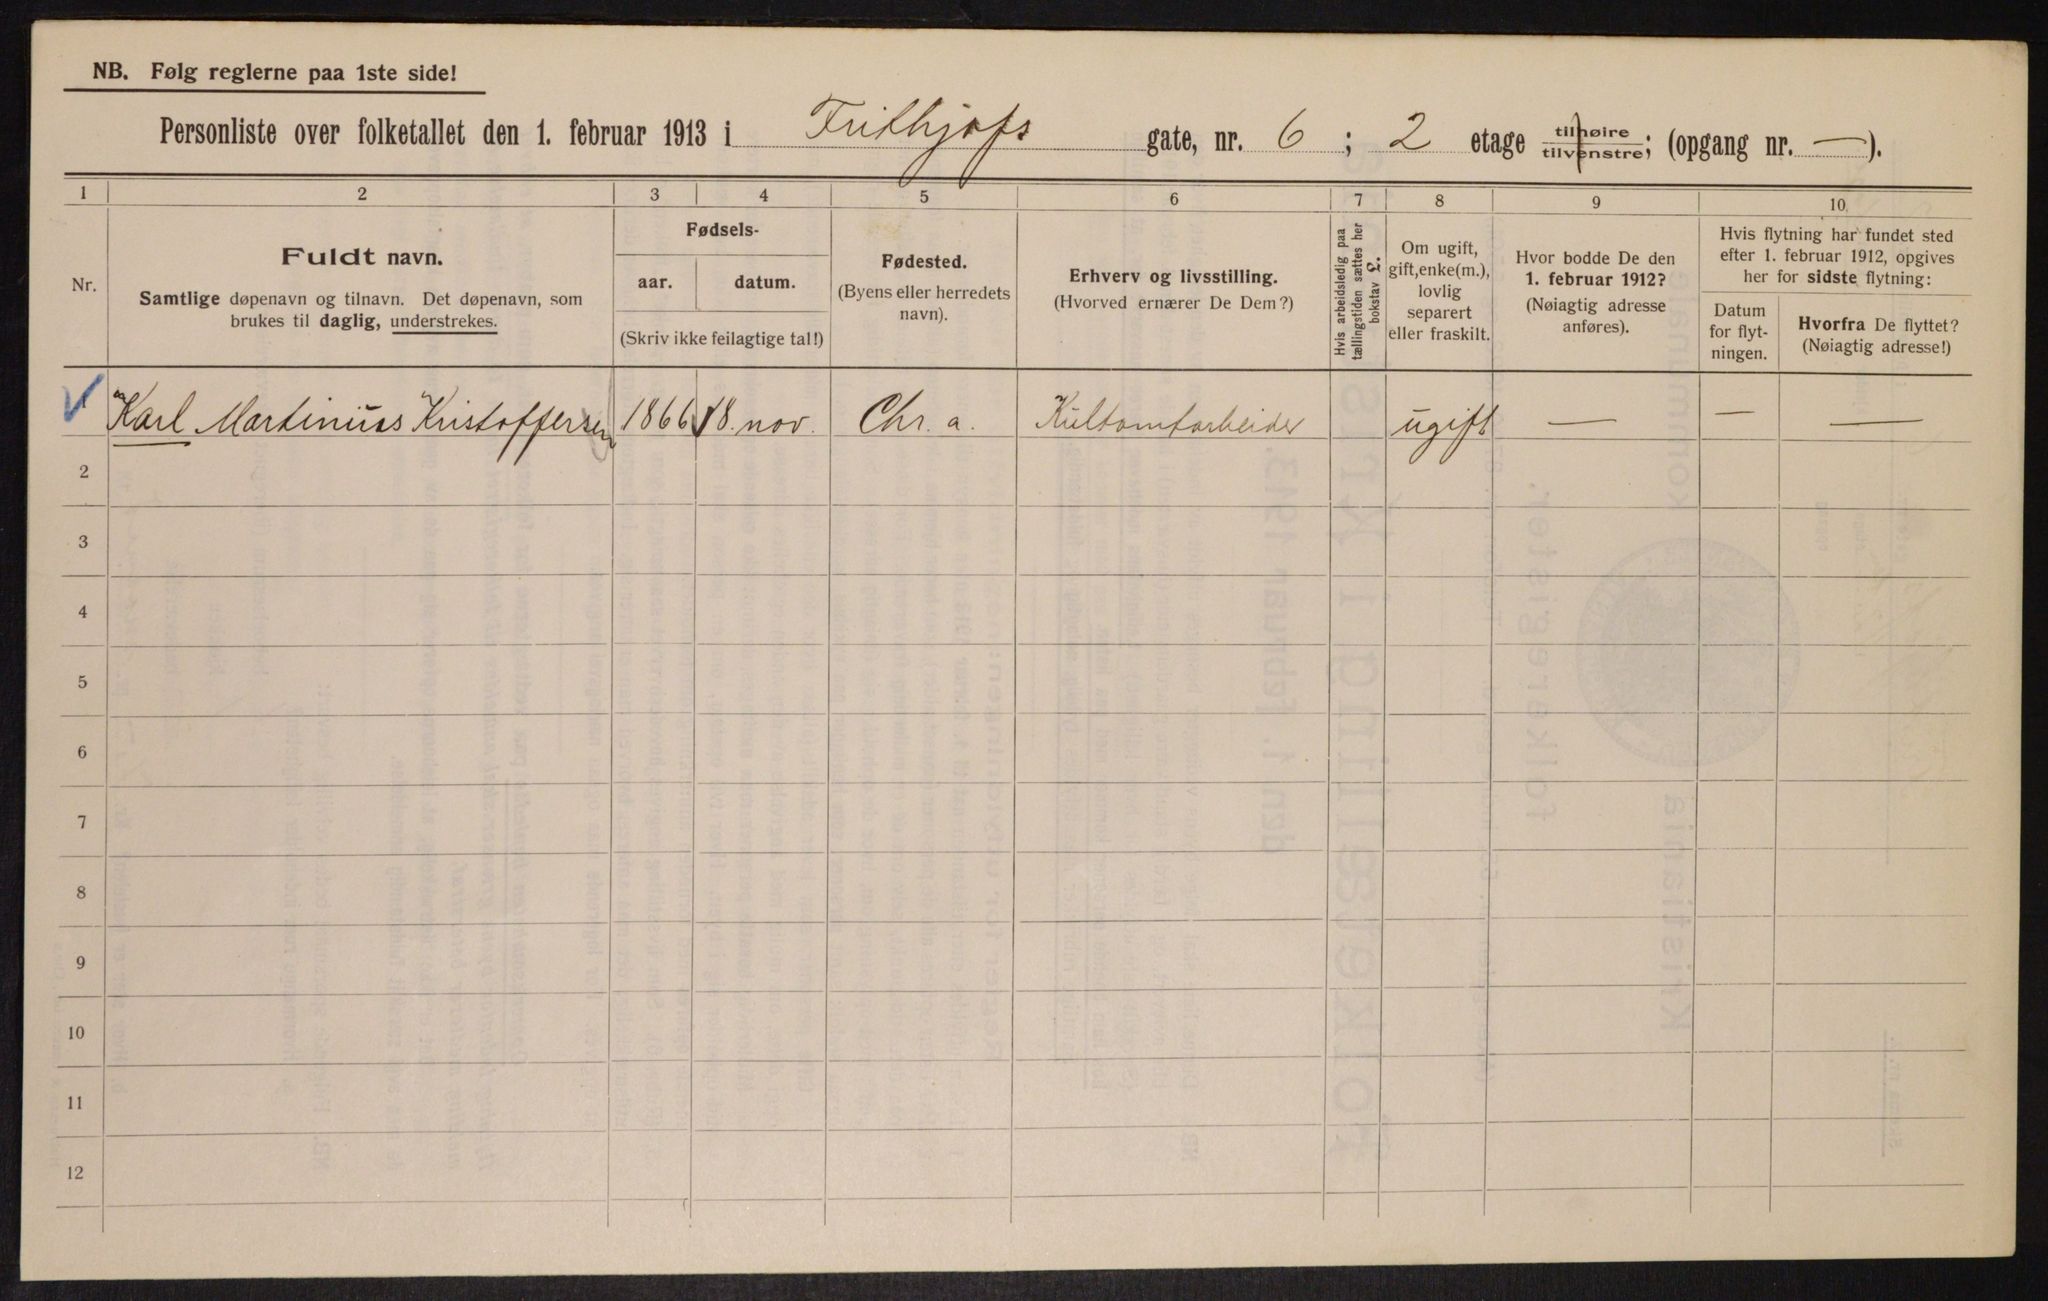 NB. Følg reglerne paa 1ste side!
Personliste over folketallet den 1. februar 1913 i Frithjofs gate, nr. 6 ; 2 etage tilhøire tilvenstre; (opgang nr. — ).
1 2 3 4 5 6 7 8 9 10
Nr.
Fuldt navn.
Samtlige døpenavn og tilnavn. Det døpenavn, som
brukes til daglig, understrekes.
Fødsels-
aar. datum.
(Skriv ikke feilagtige tal!)
Fødested.
(Byens eller herredets
navn).
Erhverv og livsstilling.
(Hvorved ernærer De Dem?)
Hvis arbeidsledig paa
tællingstiden sættes her
bokstav L.
Om ugift,
gift, enke(m.),
lovlig
separert
eller fraskilt.
Hvor bodde De den
1. februar 1912?
(Nøiagtig adresse
anføres).
Hvis flytning har fundet sted
efter 1. februar 1912, opgives
her for sidste flytning:
Datum
for flyt-
ningen.
Hvorfra De flyttet?
(Nøiagtig adresse!)
1 Karl Martinius Kristoffersen 1866 18. nov. Chr. a. ugift — — —
2
3
4
5
6
7
8
9
10
11
12